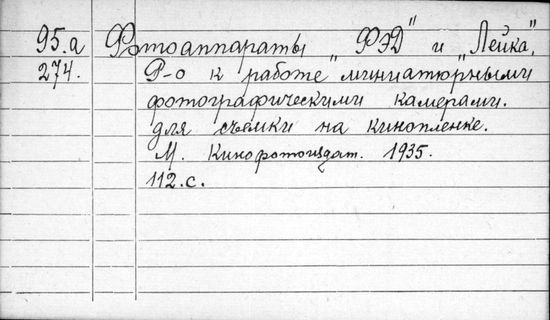 95.а Фотоаппараты "ФЭД" и "Лейка".
274. Р-о к работе миниатюрными
фотографическими камерами.
для съемки на кинопленке.
М. Кинофотоиздат. 1935.
112.с.